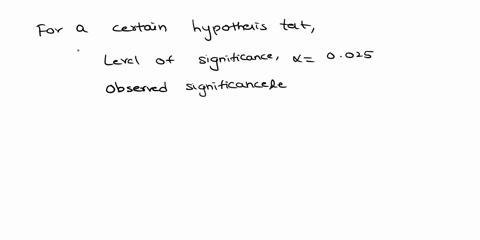 For a certain hypothesis test,
Level of significance, α = 0.025
observed significancele